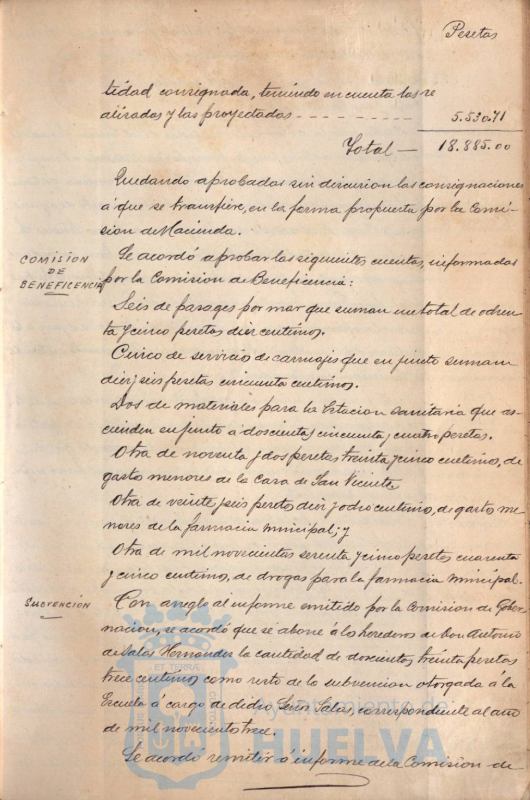 Pesetas
tidad consignada, teniendo en cuenta las re
alizadas y las proyectadas - - - - - - - - 5.530.71
Total — 18.885.00
Quedando aprobadas sin discusion las consignacione
á que se transfiere, en la forma propuesta por la Comi-
sion de Hacienda.
COMISION
DE
BENEFICENCIA
Se acordó aprobar las siguientes cuentas, informadas
por la Comision de Beneficencia:
Seis de pasages por mar que suman un total de ochen-
ta y cinco pesetas diez centimos.
Cinco de servicio de carruajes que en junto suman
diez y seis pesetas cincuenta centimos.
Dos de materiales para la Estacion sanitaria que as-
cienden en junto á doscientas cincuenta y cuatro pesetas.
Otra de noventa y dos pesetas treinta y cinco centimos, de
gastos menores de la Casa de San Vicente
Otra de veinte y seis pesetas diez y ocho centimos, de gastos me-
nores de la farmacia municipal; y
Otra de mil novecientas setenta y cinco pesetas cuarenta
y cinco centimos, de drogas para la farmacia municipal.
SUBVENCIÓN
Con arreglo al informe emitido por la Comision de Gober-
nacion, se acordó que se abone á los herederos de Don Antonio
de Salas Hernandez la cantidad de doscientas treinta pesetas
trece centimos como resto de la subvencion otorgada á la
Escuela á cargo de dicho Señor Salas, correspondiente al año
de mil novecientos trece.
Se acordó remitir á informe de la Comision de
ET TERRÆ
Ayuntamiento de
HUELVA